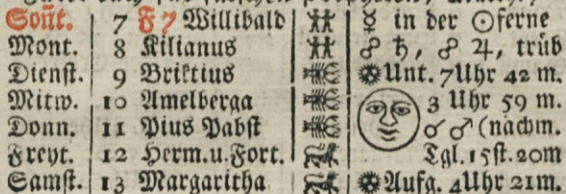 Soñt. 7 F 7 Willibald ♊ ☿ in der ☉ferne
Mont. 8 Kilianus ♊ ☍ ♄, ☍ ♃, trüb
Dienst. 9 Briktius Unt. 7Uhr 42 m.
Mitw. 10 Amelberga 3 Uhr 59 m.
Donn. 11 Pius Pabst ☌ ♂ (nachm.
Freyt. 12 Herm. u. Fort. Tgl. 15st. 20m
Samst. 13 Margaritha Aufg. 4Uhr 21m.